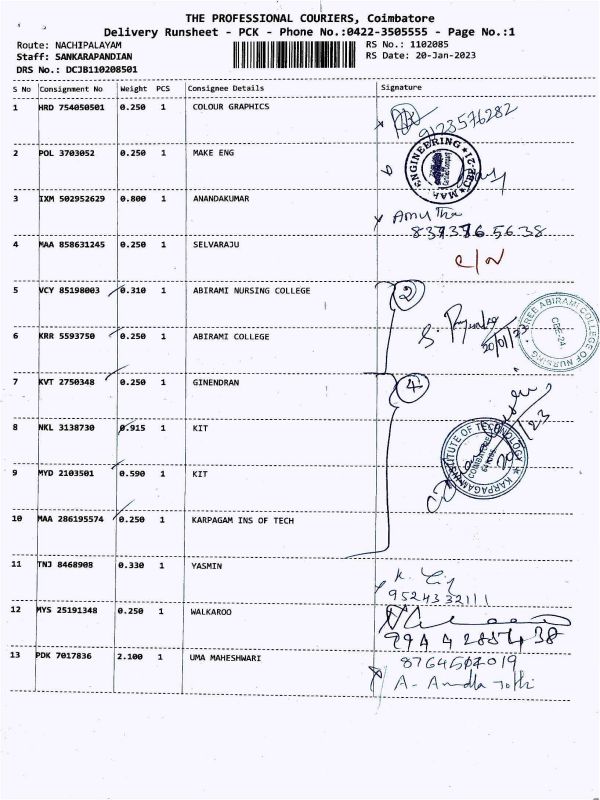 THE PROFESSIONAL COURIERS, Coimbatore
Delivery Runsheet - PCK - Phone No.:0422-3505555 - Page No.:1
Route: NACHIPALAYAM RS No.: 1102085
Staff: SANKARAPANDIAN RS Date: 20-Jan-2023
DRS No.: DCJB110208501
S No Consignment No Weight PCS Consignee Details Signature
1 HRD 754050501 0.250 1 COLOUR GRAPHICS
9123576282
2 POL 3703052 0.250 1 MAKE ENG
ENGINEERING
3 IXM 502952629 0.800 1 ANANDAKUMAR
Amutha
4 MAA 858631245 0.250 1 SELVARAJU
5 VCY 85198003 0.310 1 ABIRAMI NURSING COLLEGE 2
6 KRR 5593750 0.250 1 ABIRAMI COLLEGE
20/01/23
SREE ABIRAMI COLLEGE OF NURSING
CBE-24.
7 KVT 2750348 0.250 1 GINENDRAN 4
8 NKL 3138730 0.915 1 KIT
9 MYD 2103501 0.590 1 KIT
KARPAGAM INSTITUTE OF TECHNOLOGY
COIMBATORE
10 MAA 286195574 0.250 1 KARPAGAM INS OF TECH
11 TNJ 8468908 0.330 1 YASMIN
9524332111
12 MYS 25191348 0.250 1 WALKAROO
13 PDK 7017836 2.100 1 UMA MAHESHWARI